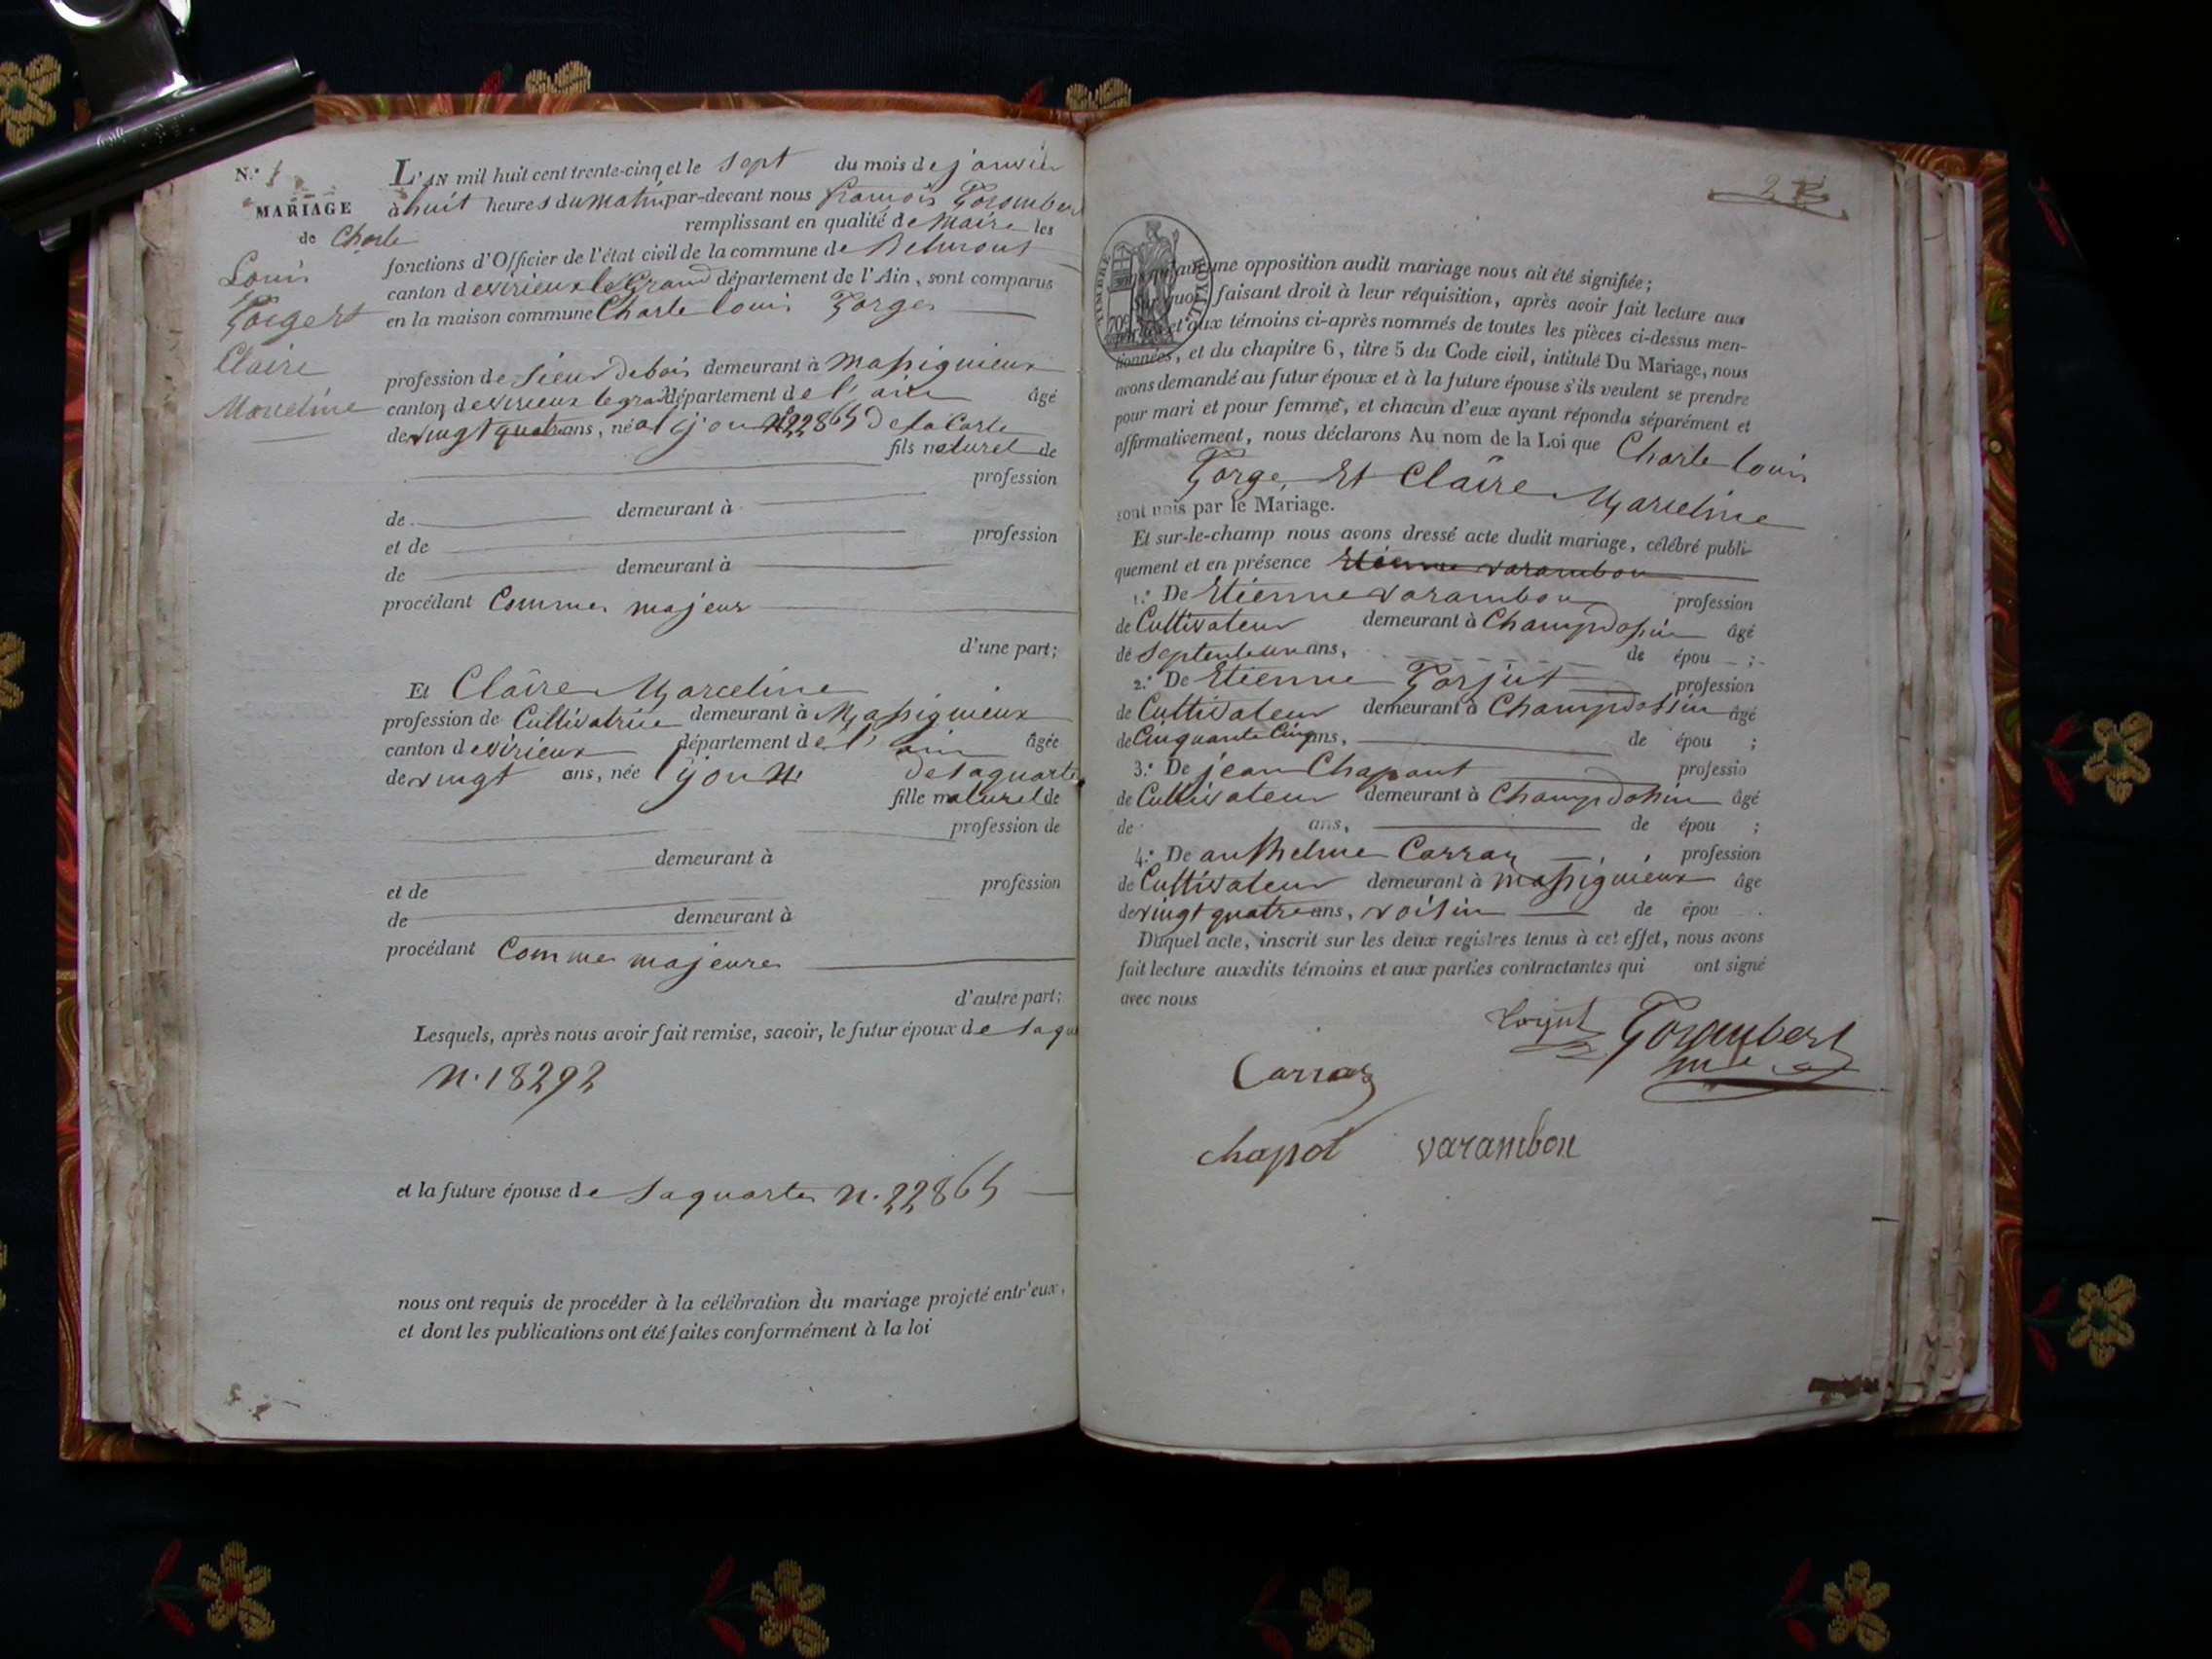 N.° 1
MARIAGE
de Charle
Louis
Gorgert
Claire
Marceline
L'AN mil huit cent trente-cinq et le sept du mois de janvier
à huit heures du matin par-devant nous françois Gorombert
remplissant en qualité de Maire les
fonctions d'Officier de l'état civil de la commune de Belmont
canton de virieux le Grand département de l'Ain, sont comparus
en la maison commune Charle louis Gorge
profession de sieur de bois demeurant à Massignieux
canton de virieux le grand département de l'ain âgé
de vingt quatre ans, né a lyon n°22865 de la Carte
fils naturel de
profession
de demeurant à
et de profession
de demeurant à
procédant Comme majeur
d'une part;
Et Claire Marceline
profession de Cultivatrice demeurant à Massignieux
canton de virieux département de l'ain âgée
de vingt ans, née lyon de la quarte
fille naturel de
profession de
demeurant à
et de profession
de demeurant à
procédant Comme majeure
d'autre part;
Lesquels, après nous avoir fait remise, savoir, le futur époux de sa qu
n. 18292
et la future épouse de sa quarte n. 22865
nous ont requis de procéder à la célébration du mariage projeté entr'eux,
et dont les publications ont été faites conformément à la loi
2
TIMBRE ROYAL
70
aucune opposition audit mariage nous ait été signifiée;
Sur quoi faisant droit à leur réquisition, après avoir fait lecture aux
parties et aux témoins ci-après nommés de toutes les pièces ci-dessus men-
tionnées, et du chapitre 6, titre 5 du Code civil, intitulé Du Mariage, nous
avons demandé au futur époux et à la future épouse s'ils veulent se prendre
pour mari et pour femme, et chacun d'eux ayant répondu séparément et
affirmativement, nous déclarons Au nom de la Loi que Charle louis
Gorge, Et Claire Marceline
sont unis par le Mariage.
Et sur-le-champ nous avons dressé acte dudit mariage, célébré publi-
quement et en présence Etienne varambon
1.° De Etienne varambon profession
de Cultivateur demeurant à Champdossin âgé
de septente un ans, de épou ;
2.° De Etienne Gorjut profession
de Cultivateur demeurant à Champdossin âgé
de Cinquante Cinq ans, de épou ;
3.° De jean Chapaut professio
de Cultivateur demeurant à Champdossin âgé
de ans, de épou ;
4.° De anthelme Carraz profession
de Cultivateur demeurant à massignieux âgé
de vingt quatre ans, voisin de épou .
Duquel acte, inscrit sur les deux registres tenus à cet effet, nous avons
fait lecture auxdits témoins et aux parties contractantes qui ont signé
avec nous
Gorjut Gorombert
Carraz mre
chapot varambon